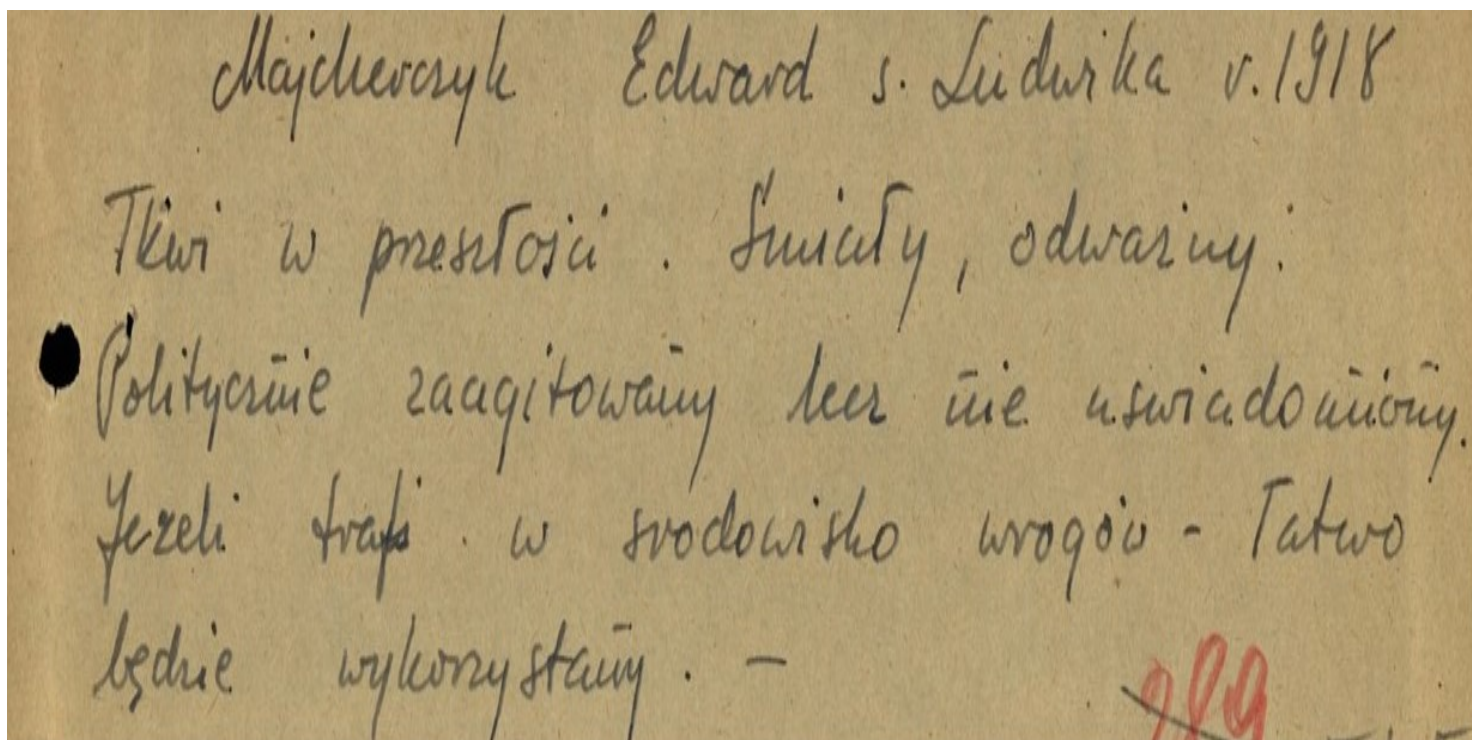 Majcherczyk Edward s. Ludwika r. 1918
Tkwi w przeszłości. Śmiały, odważny.
Politycznie zaagitowany lecz nie uświadomiony.
Jeżeli trafi w środowisko wrogów - łatwo
będzie wykorzystany. -